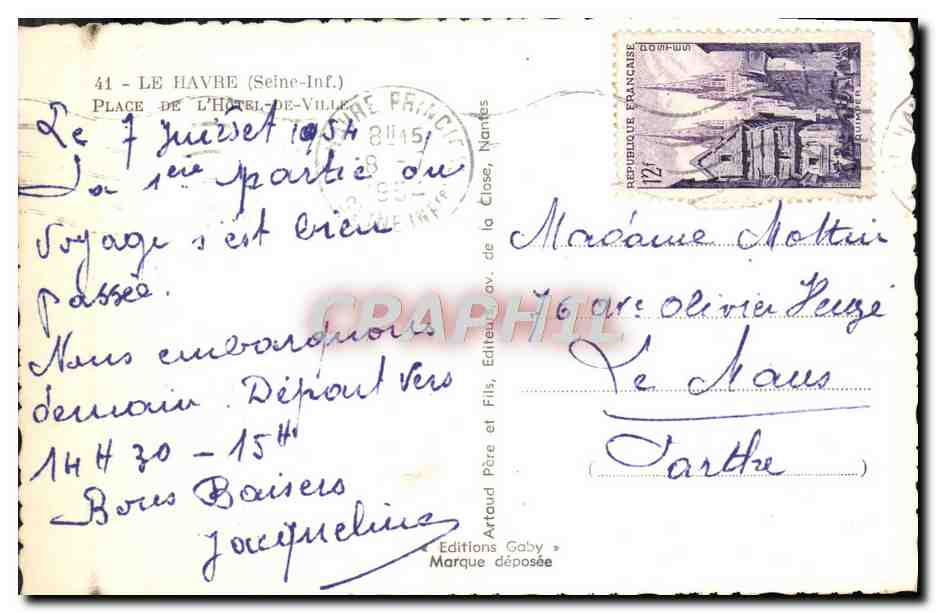 41 - LE HAVRE (Seine-Inf.)
PLACE DE L'HÔTEL-DE-VILLE
Le 7 Juillet 1954
La 1ère partie du
voyage s'est bien
passée.
Nous embarquons
demain. Départ vers
14H 30 - 15H
Bons Baisers
Jacqueline
Artaud Père et Fils, Editeurs, av. de la Close, Nantes
« Editions Gaby »
Marque déposée
HAVRE PRINCIPAL
8H15
8 - 7
1954
SEINE INFre
REPUBLIQUE FRANÇAISE
POSTES
12f
QUIMPER
Madame
76 ave Olivier Heuzé
Le Mans
(Sarthe)
CRAPHIL